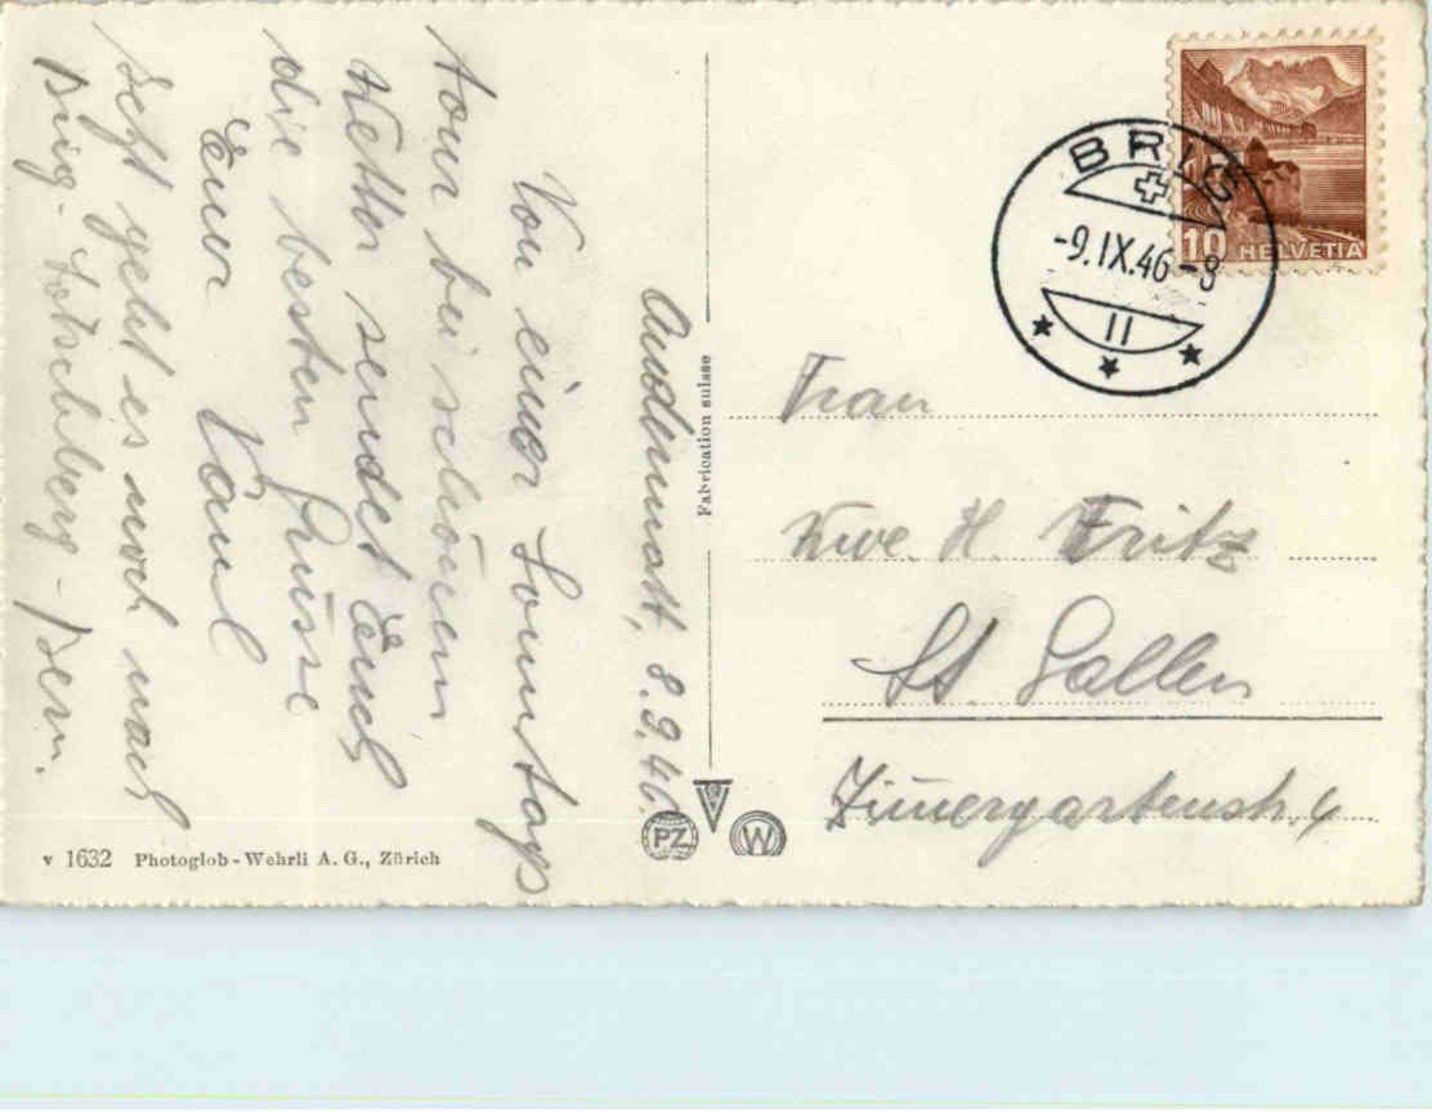 Andermatt, 8.9.46.
Von einer Sonntags
tour bei schönem
Wetter sendet Euch
die besten Grüsse
Euer Paul
Jetzt geht es noch nach
Brig - Lötschberg - Bern.
Fabrication suisse
PZ
W
v 1632 Photoglob-Wehrli A. G., Zürich
BRIG
-9.IX.46-8
II
10 HELVETIA
Frau
Wwe. H. Fritz
St. Gallen